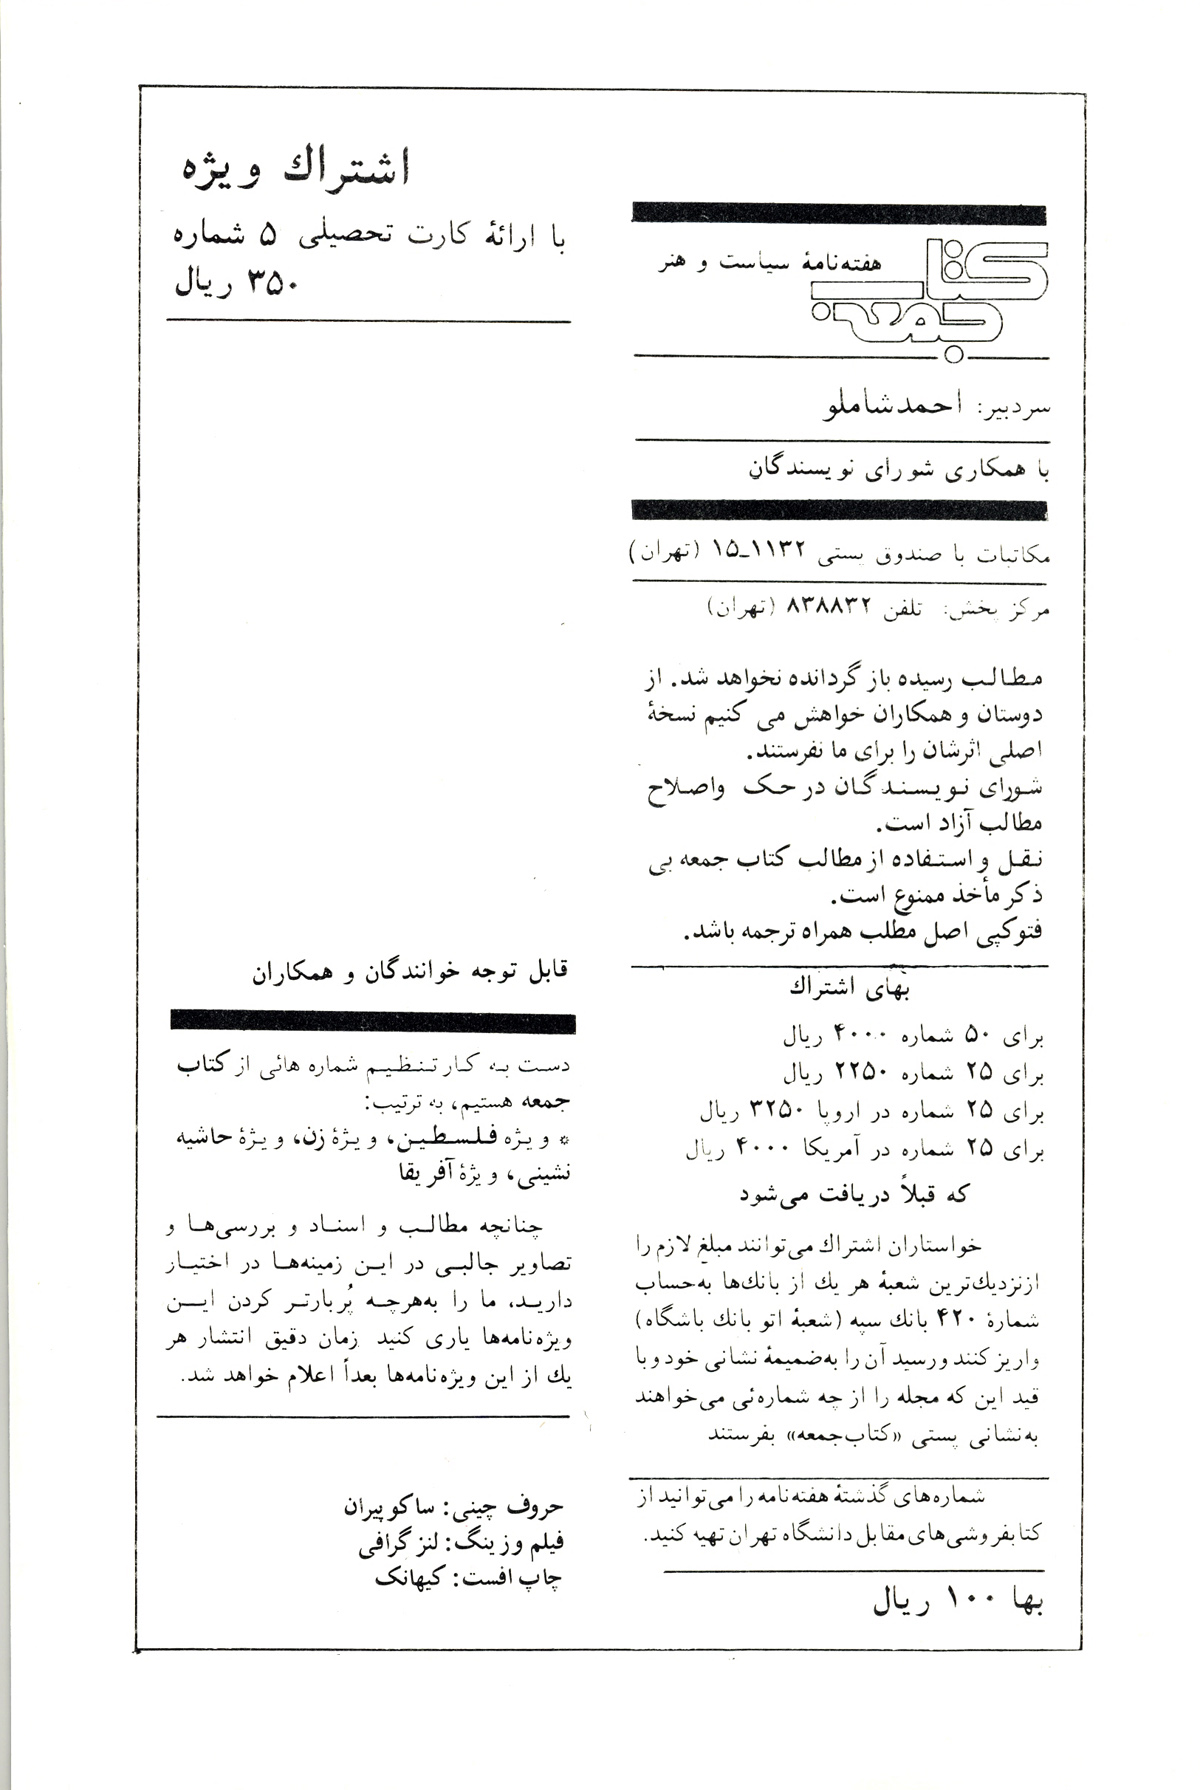 هفته‌نامهٔ سیاست و هنر
کتاب
جمعه
سردبیر: احمد شاملو
با همکاری شورای نویسندگان
مکاتبات با صندوق پستی ۱۱۳۲ـ۱۵ (تهران)
مرکز پخش: تلفن ۸۳۸۸۳۲ (تهران)
مطالب رسیده باز گردانده نخواهد شد. از
دوستان و همکاران خواهش می کنیم نسخهٔ
اصلی اثرشان را برای ما نفرستند.
شورای نویسندگان در حک واصلاح
مطالب آزاد است.
نقل و استفاده از مطالب کتاب جمعه بی
ذکر مأخذ ممنوع است.
فتوکپی اصل مطلب همراه ترجمه باشد.
بهای اشتراك
برای ۵۰ شماره ۴۰۰۰ ریال
برای ۲۵ شماره ۲۲۵۰ ریال
برای ۲۵ شماره در اروپا ۳۲۵۰ ریال
برای ۲۵ شماره در آمریکا ۴۰۰۰ ریال
که قبلاً دریافت می‌شود
خواستاران اشتراك می‌توانند مبلغ لازم را
ازنزدیك‌ترین شعبهٔ هر یك از بانك‌ها به‌حساب
شمارهٔ ۴۲۰ بانك سپه (شعبهٔ اتو بانك باشگاه)
واریز کنند ورسید آن را به‌ضمیمهٔ نشانی خود و با
قید این که مجله را از چه شماره‌ئی می‌خواهند
به‌نشانی پستی «کتاب‌جمعه» بفرستند
شماره‌های گذشتهٔ هفته‌نامه را می‌توانید از
کتابفروشی‌های مقابل دانشگاه تهران تهیه کنید.
بها ۱۰۰ ریال
اشتراك ویژه
با ارائهٔ کارت تحصیلی ۵ شماره
۳۵۰ ریال
قابل توجه خوانندگان و همکاران
دست به کار تنظیم شماره هائی از کتاب
جمعه هستیم، به ترتیب:
* ویژه فلسطین، ویژهٔ زن، ویژهٔ حاشیه
نشینی، ویژهٔ آفریقا
چنانچه مطالب و اسناد و بررسی‌ها و
تصاویر جالبی در این زمینه‌ها در اختیار
دارید، ما را به‌هرچه پُربارتر کردن این
ویژه‌نامه‌ها یاری کنید زمان دقیق انتشار هر
یك از این ویژه‌نامه‌ها بعداً اعلام خواهد شد.
حروف چینی: ساکو پیران
فیلم و زینگ: لنز گرافی
چاپ افست: کیهانک